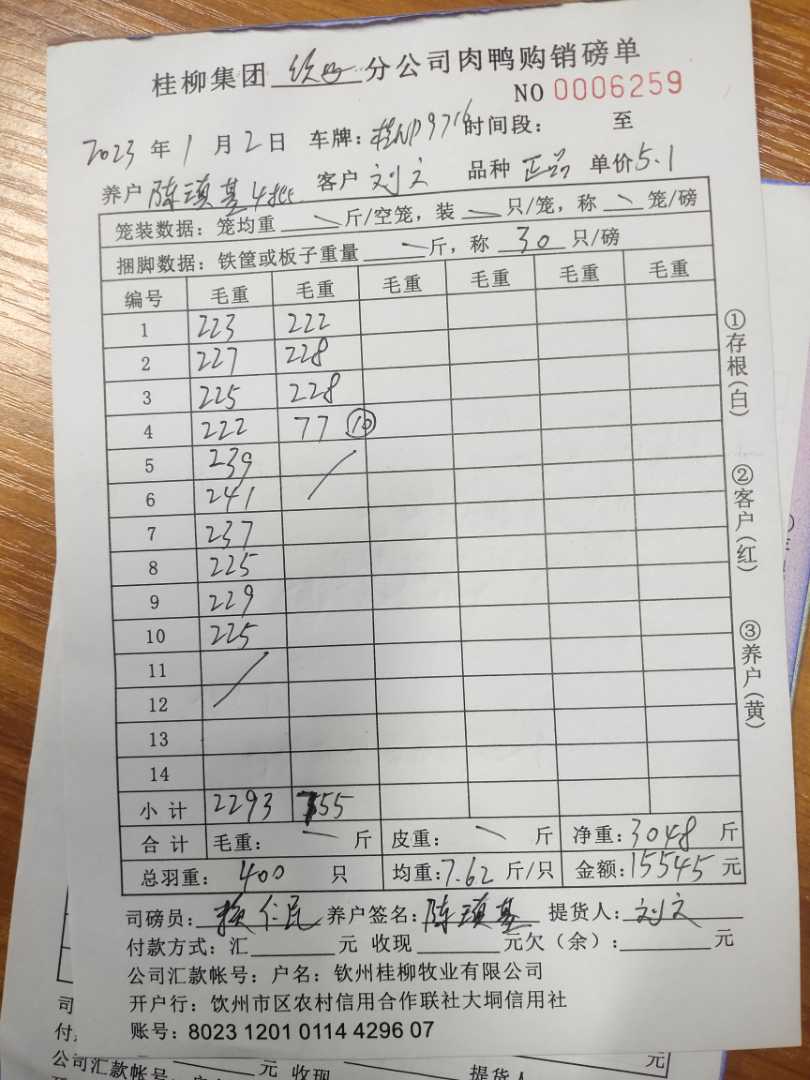 桂柳集团 钦州 分公司肉鸭购销磅单
NO 0006259
2023 年 1 月 2 日 车牌：桂N09716 时间段： 至
养户 陈琼基4批 客户 刘文 品种 正品 单价5.1
笼装数据：笼均重 \ 斤/空笼，装 \ 只/笼，称 \ 笼/磅
捆脚数据：铁筐或板子重量 \ 斤，称 30 只/磅
编号 毛重 毛重 毛重 毛重 毛重 毛重
1 223 222
2 227 228
3 225 228
4 222 77 ⑩
5 239 /
6 241
7 237
8 225
9 229
10 225
11 /
12
13
14
小 计 2293 755
合 计 毛重： \ 斤 皮重： \ 斤 净重：3048 斤
总羽重： 400 只 均重：7.62 斤/只 金额：15545 元
司磅员： 仁民 养户签名：陈琼基 提货人：刘文
付款方式：汇 元 收现 元欠（余）： 元
公司汇款帐号：户名：钦州桂柳牧业有限公司
开户行：饮州市区农村信用合作联社大垌信用社
账号：8023 1201 0114 4296 07
①存根(白)
②客户(红)
③养户(黄)
司
付
公司汇款帐号 元 收现 提货人 元